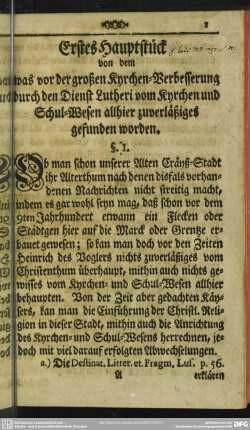 Erstes Hauptstück
von dem
was vor der großen Kyrchen-Verbesserung
durch den Dienst Lutheri vom Kyrchen und
Schul-Wesen allhier zuverläßiges
gefunden worden.
§. I.
Ob man schon unserer Alten Cräyß-Stadt
ihr Alterthum nach denen dißfals vorhan-
denen Nachrichten nicht streitig macht,
indem es gar wohl seyn mag, daß schon vor dem
9ten Jahrhundert etwann ein Flecken oder
Städtgen hier auf die Marck oder Grentze er-
bauet gewesen; so kan man doch vor den Zeiten
Heinrich des Voglers nichts zuverläßiges vom
Christenthum überhaupt, mithin auch nichts ge-
wisses vom Kyrchen- und Schul-Wesen allhier
behaupten. Von der Zeit aber gedachten Käy-
sers, kan man die Einführung der Christl. Reli-
gion in dieser Stadt, mithin auch die Anrichtung
des Kyrchen- und Schul-Wesens herrechnen, je-
doch mit viel darauf erfolgten Abwechselungen.
a.) Die Destinat. Litter. et. Fragm, Lus. p. 56.
A erklären